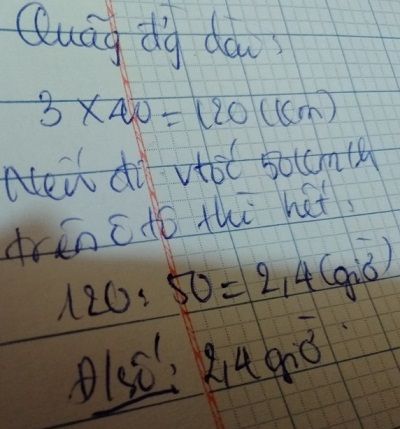 Quãg đg dài:
3 × 40 = 120 (km)
Nếu đi vtốc 50km/h
trên ô tô thì hết:
120 : 50 = 2,4 (giờ)
Đ/số: 2,4 giờ.